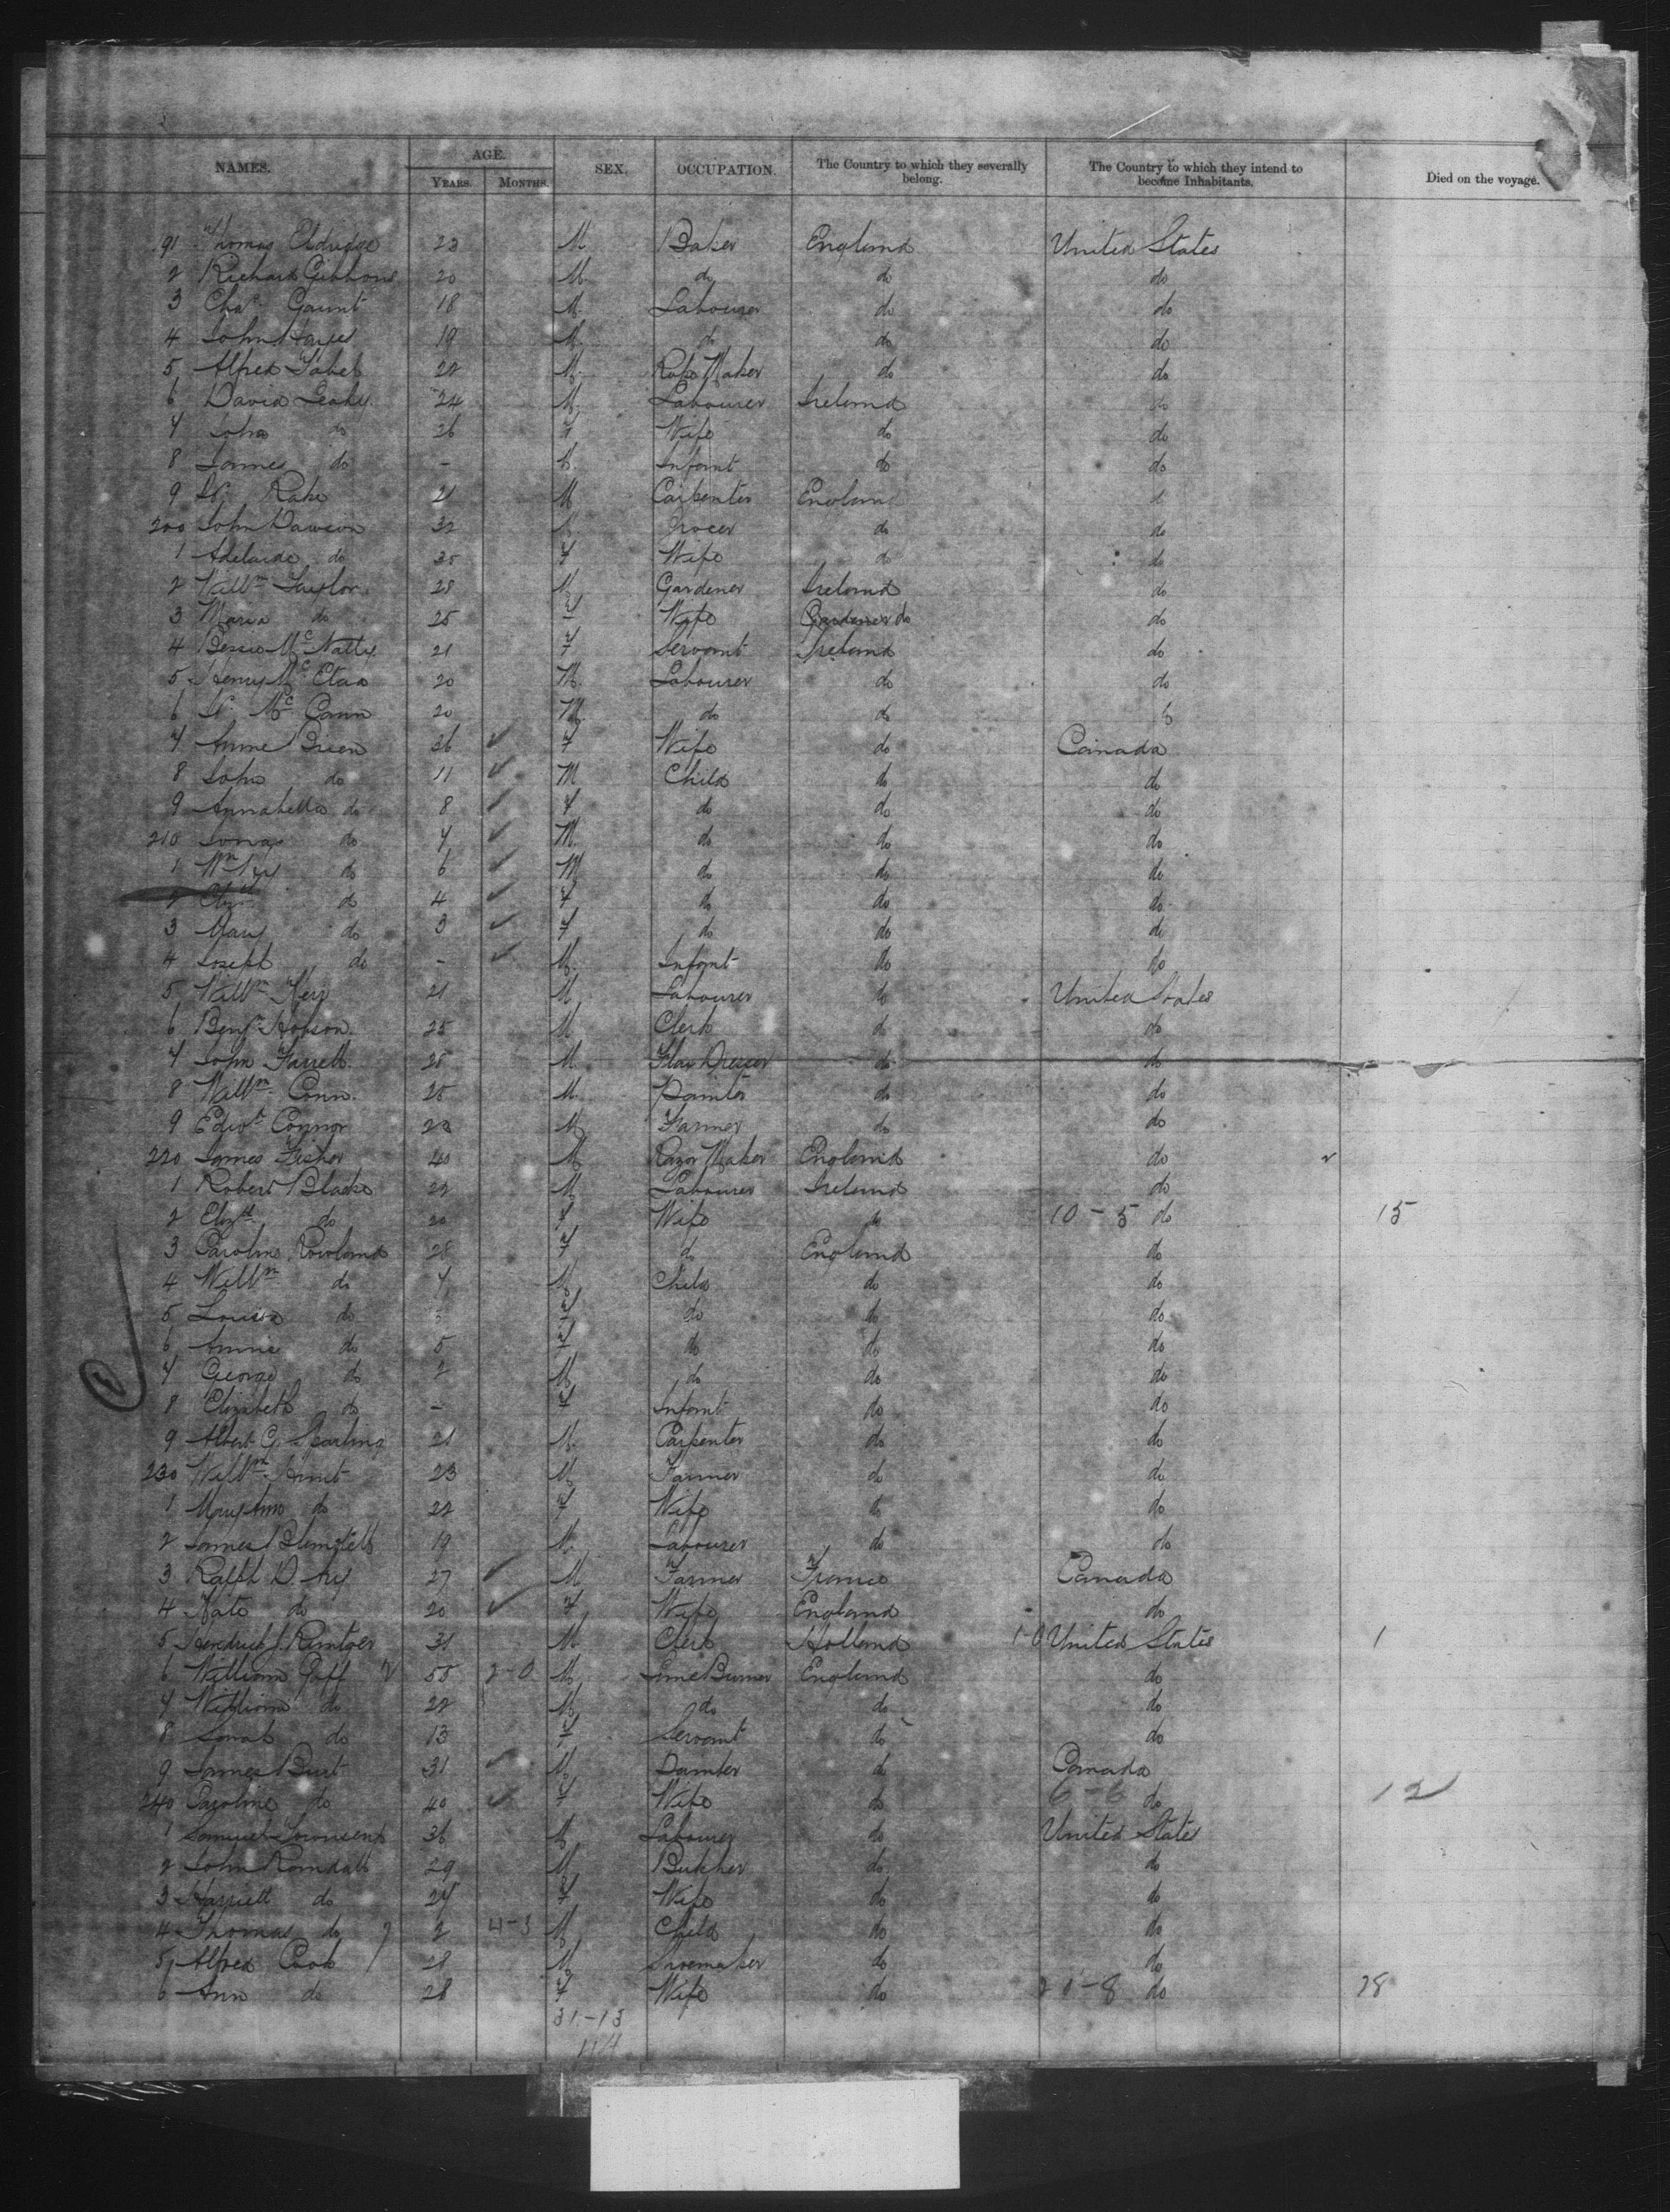 NAMES. AGE. YEARS. MONTHS. SEX. OCCUPATION. The Country to which they severally belong. The Country to which they intend to become Inhabitants. Died on the voyage.
91 Thomas Eldridge 23 M Baker England United States
2 Richard Gibbons 20 M do do do
3 Chas Gaunt 18 M. Labourer do do
4 John Hayes 19 M. do do do
5 Alfred 22 M. Maker do do
6 David Leahy 24 M Labourer Ireland do
7 do 26 F Wife do do
8 James do - M. Infant do do
9 Rake 21 M Carpenter England
200 John Dawson 32 M. Grocer do do
1 Adelaide do 35 F Wife do do
2 Willm Taylor 28 M Gardener Ireland do
3 Maria do 25 F Wife Gardener do do
4 Bessie McNally 21 F Servant Ireland do
5 Henry Mc 20 M. Labourer do do
6 McCann 20 M. do do
7 Anne 36 F Wife do Canada
8 John do 11 M Child do do
9 Annabella do 8 F do do do
210 do 7 M. do do do
1 do 6 M do do do
2 Elizth do 4 F do do do
3 Mary do 3 F do do do
4 Joseph do - M. Infant do do
5 Willm 21 M Labourer do United States
6 Benjn Hobson 25 M. Clerk do do
7 John Farrell 25 M. Flax Dresser do do
8 Willm Conn. 25 M. Painter do do
9 Edwd Connor 23 M Farmer do do
220 James Fisher 40 M Razor Maker England do
1 Robert Black 22 M Labourer Ireland do
2 Elizth do 20 F Wife do 10-5 do 15
3 Caroline Rowland 28 F do England do
4 Willm do 7 M Child do do
5 Louisa do F do do do
6 Annie do 5 F do do do
7 George do 2 M do do do
8 Elizabeth do - F Infant do do
9 Albert G. Sparling 21 M. Carpenter do do
230 Willm Hunt 23 M Farmer do do
1 Mary Ann do 22 F Wife do do
2 James 19 M. Labourer do do
3 Ralph D. 27 M Farmer France Canada
4 Kate do 20 F Wife England do
5 Hendrick J. 31 M. Clerk Holland 1-0 United States 1
6 William Goff 55 2-0 M. Lime Burner England do
7 William do 22 M do do do
8 Sarah do 13 F Servant do do
9 James Burt 31 M. Painter do Canada
240 Caroline do 40 F Wife do 6-6 do 12
1 Samuel Townsend 36 M Labourer do United States
2 John Randall 29 M Butcher do do
3 Harriett do 24 F Wife do do
4 Thomas do 2 4-3 M Child do do
5 Alfred Cook 28 M Shoemaker do do
6 Ann do 28 F Wife do 20-8 do 28
31-13
114